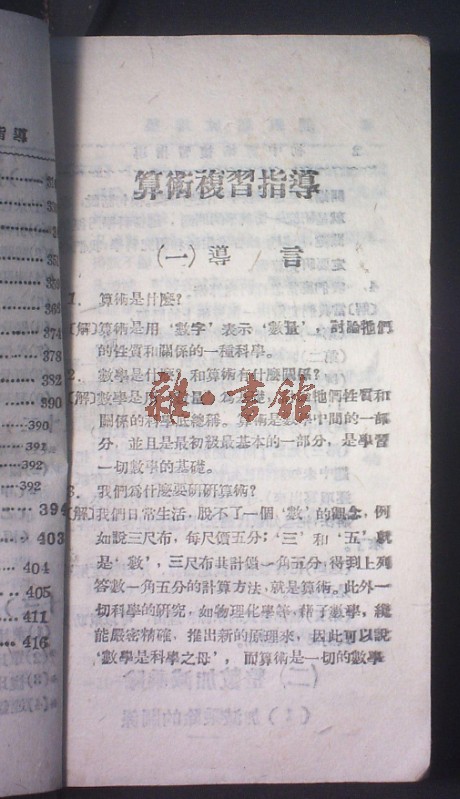 導
374
378
382
390
390
391
392
392
394
403
404
405
411
416
算術複習指導
(一) 導言
1. 算術是什麼?
〔解〕算術是用‘數字’表示‘數量’, 討論牠們
的性質和關係的一種科學。
2. 數學是什麼? 和算術有什麼關係?
〔解〕數學是 牠們性質和
關係的科學底總稱。算術是數學中間的一部
分, 並且是最初級最基本的一部分, 是學習
一切數學的基礎。
3. 我們為什麼要研研算術?
〔解〕我們日常生活, 脫不了一個‘數’的觀念, 例
如說三尺布, 每尺價五分; ‘三’和‘五’就
是‘數’, 三尺布共計價一角五分, 得到上列
答數一角五分的計算方法, 就是算術。此外一
切科學的研究, 如物理化學等, 藉了數學, 纔
能嚴密精確, 推出新的原理來, 因此可以說
‘數學是科學之母’, 而算術是一切的數學
雜·書館